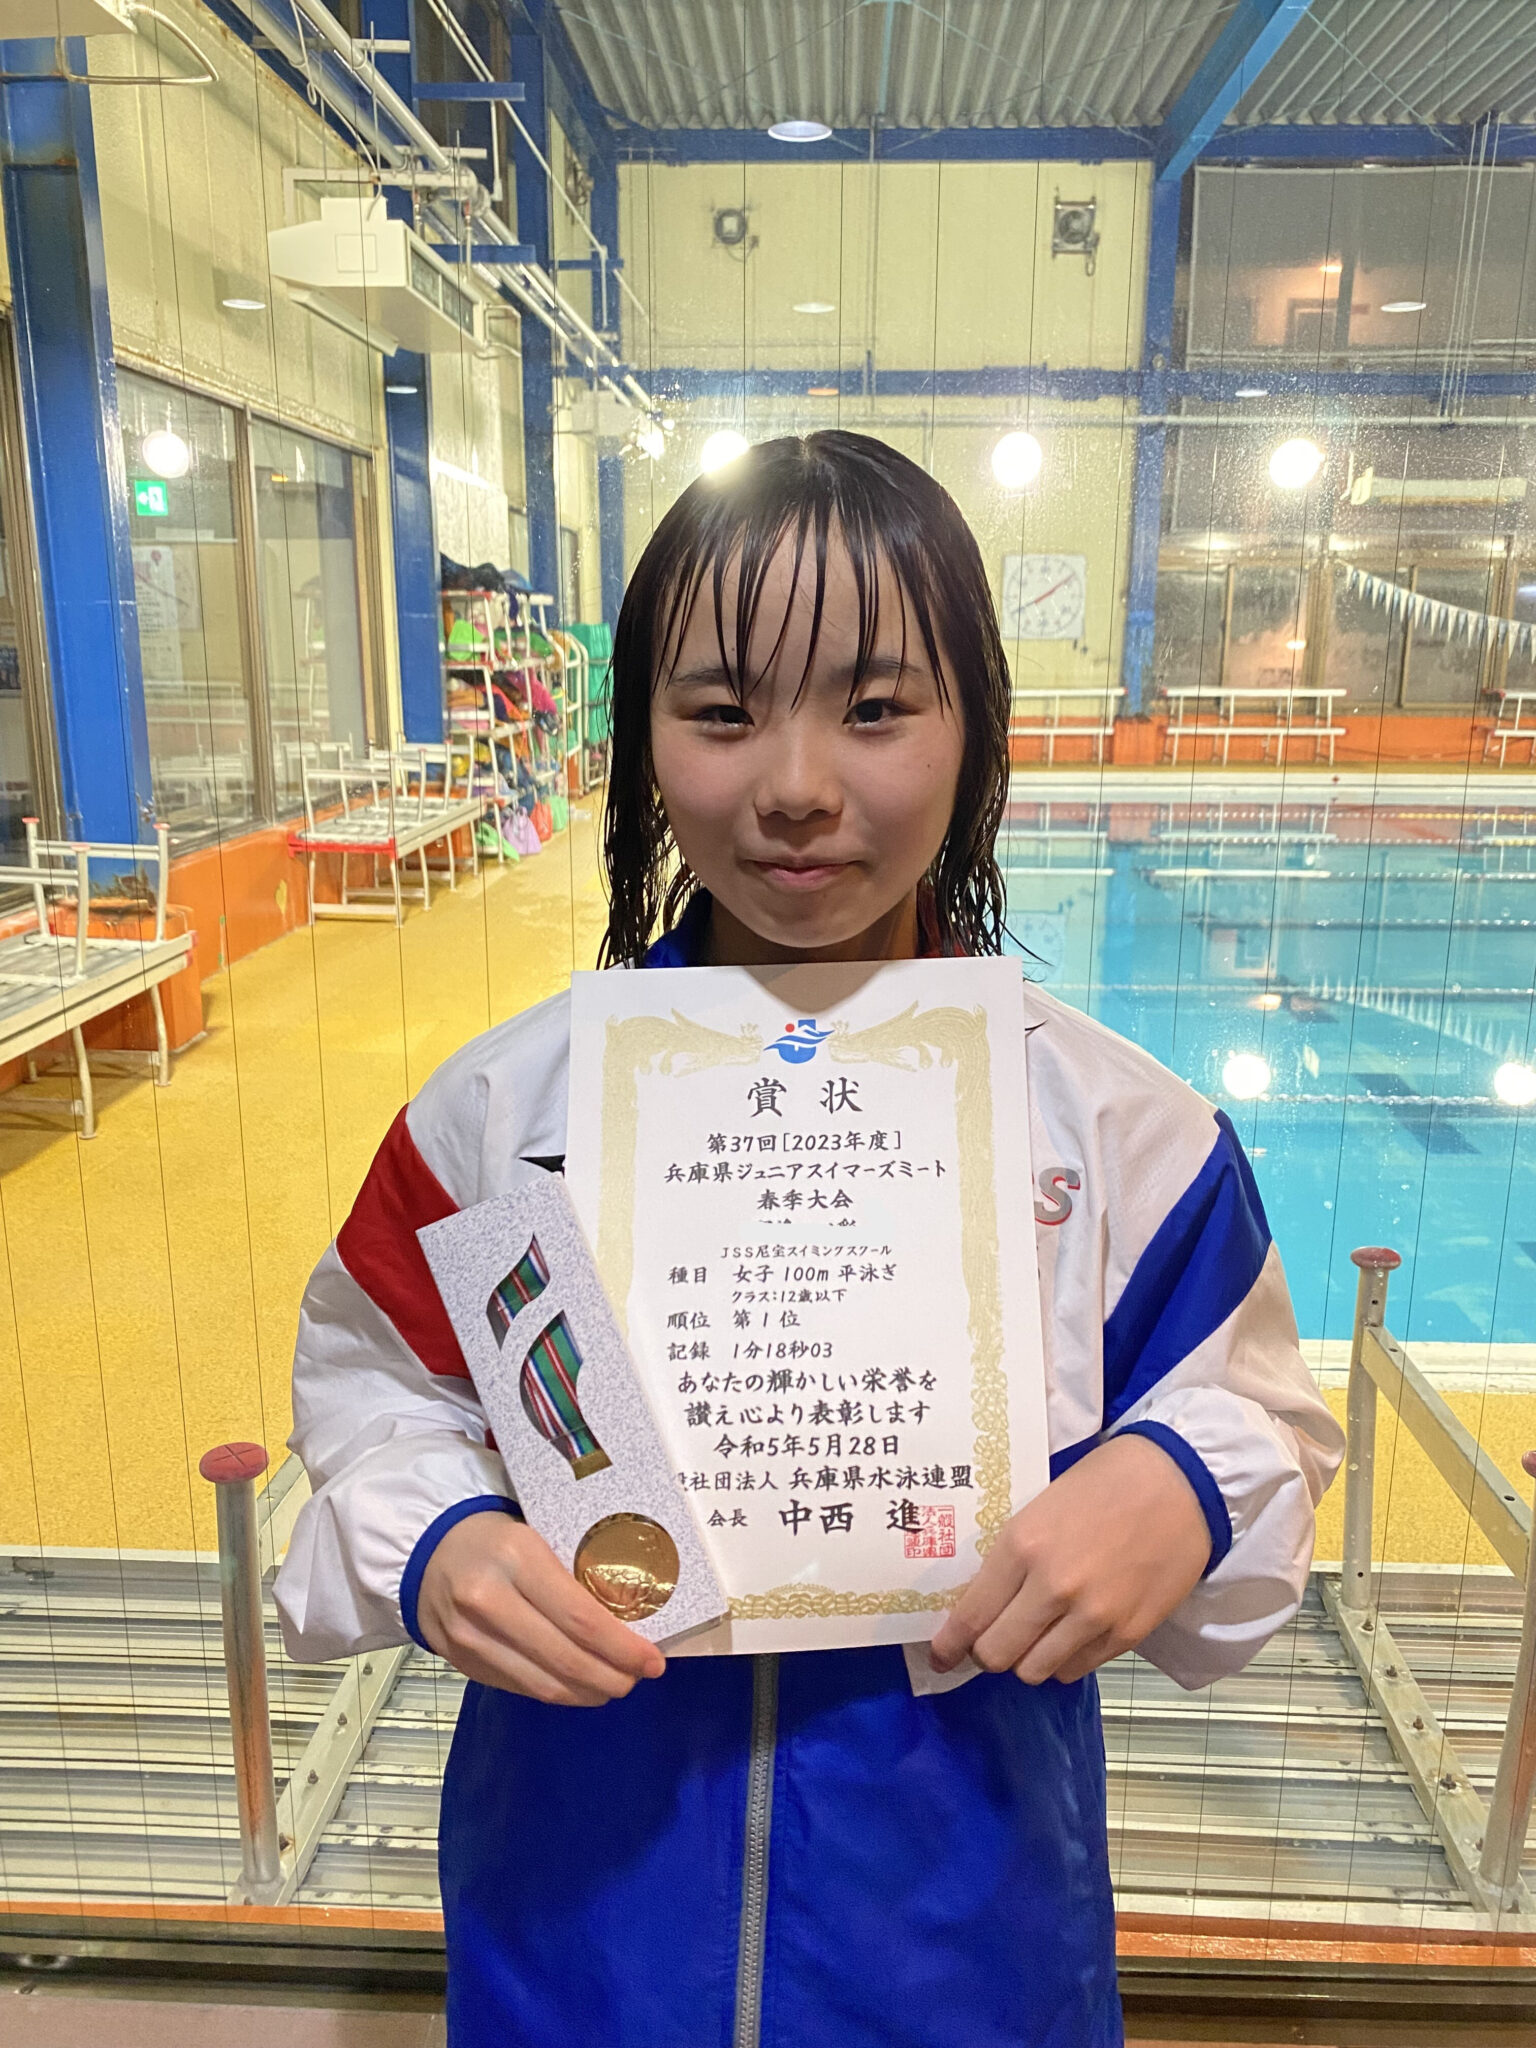 賞状
第37回[2023年度]
兵庫県ジュニアスイマーズミート
春季大会
JSS尼宝スイミングスクール
種目 女子 100m 平泳ぎ
クラス:12歳以下
順位 第1位
記録 1分18秒03
あなたの輝かしい栄誉を
讃え心より表彰します
令和5年5月28日
社団法人 兵庫県水泳連盟
会長 中西 進